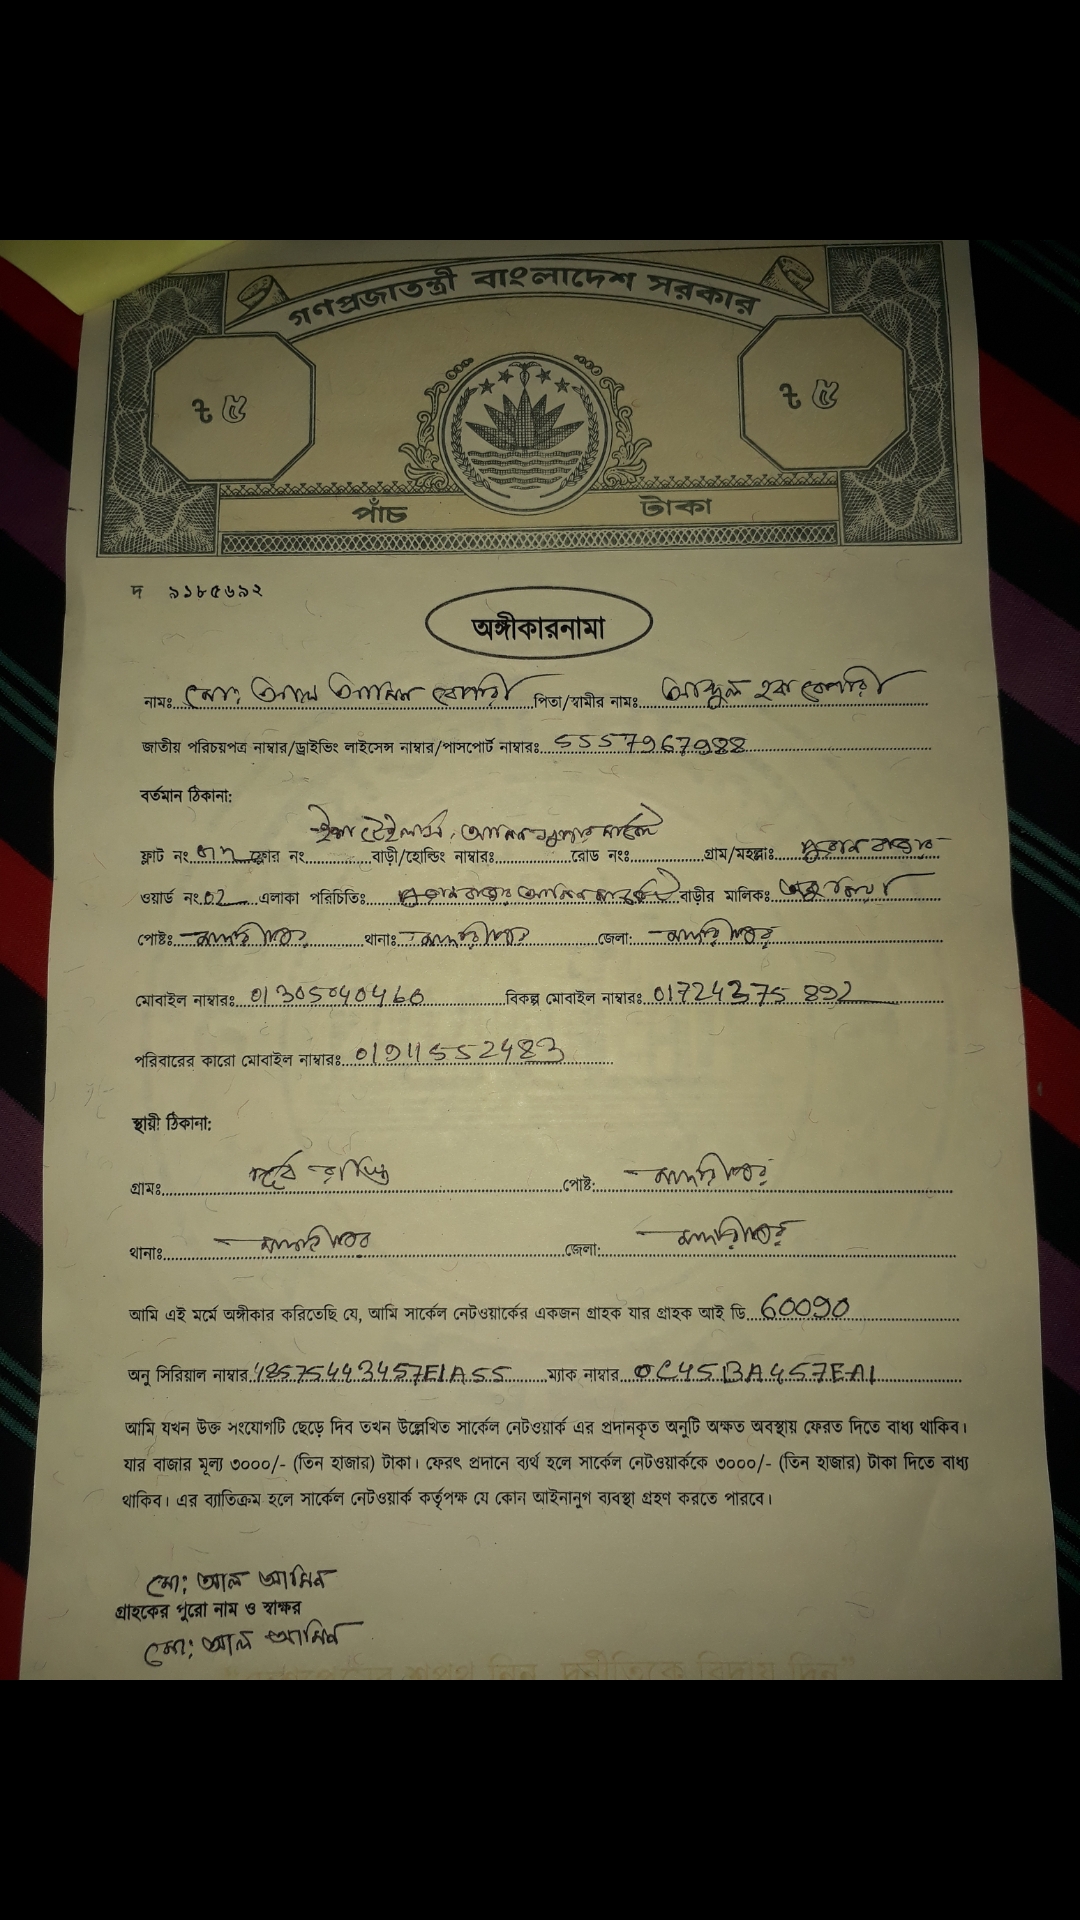 গণপ্রজাতন্ত্রী বাংলাদেশ সরকার
৳ ৫
৳ ৫
পাঁচ টাকা
দ ৯১৮৫৬৯২
অঙ্গীকারনামা
নামঃ মো: আল আমিন বেপারী পিতা/স্বামীর নামঃ আব্দুল হক বেপারী
জাতীয় পরিচয়পত্র নাম্বার/ড্রাইভিং লাইসেন্স নাম্বার/পাসপোর্ট নাম্বারঃ 5557967988
বর্তমান ঠিকানা:
টেইলার্স,
ফ্লাট নং ফ্লোর নং বাড়ী/হোল্ডিং নাম্বারঃ রোড নংঃ গ্রাম/মহল্লাঃ পুরান বাজার
ওয়ার্ড নং 02 এলাকা পরিচিতিঃ পুরান বাজার বাড়ীর মালিকঃ
পোষ্টঃ মাদারীপুর থানাঃ মাদারীপুর জেলা: মাদারীপুর
মোবাইল নাম্বারঃ 01305040460 বিকল্প মোবাইল নাম্বারঃ 01724375892
পরিবারের কারো মোবাইল নাম্বারঃ 01911552483
স্থায়ী ঠিকানা:
গ্রামঃ পোষ্ট: মাদারীপুর
থানাঃ মাদারীপুর জেলা: মাদারীপুর
আমি এই মর্মে অঙ্গীকার করিতেছি যে, আমি সার্কেল নেটওয়ার্কের একজন গ্রাহক যার গ্রাহক আই ডি 60090
অনু সিরিয়াল নাম্বার 48575443457E1A55 ম্যাক নাম্বার 0C45BA457EA1
আমি যখন উক্ত সংযোগটি ছেড়ে দিব তখন উল্লেখিত সার্কেল নেটওয়ার্ক এর প্রদানকৃত অনুটি অক্ষত অবস্থায় ফেরত দিতে বাধ্য থাকিব।
যার বাজার মূল্য ৩০০০/- (তিন হাজার) টাকা। ফেরৎ প্রদানে ব্যর্থ হলে সার্কেল নেটওয়ার্ককে ৩০০০/- (তিন হাজার) টাকা দিতে বাধ্য
থাকিব। এর ব্যাতিক্রম হলে সার্কেল নেটওয়ার্ক কর্তৃপক্ষ যে কোন আইনানুগ ব্যবস্থা গ্রহণ করতে পারবে।
মো: আল আমিন
গ্রাহকের পুরো নাম ও স্বাক্ষর
মো: আল আমিন